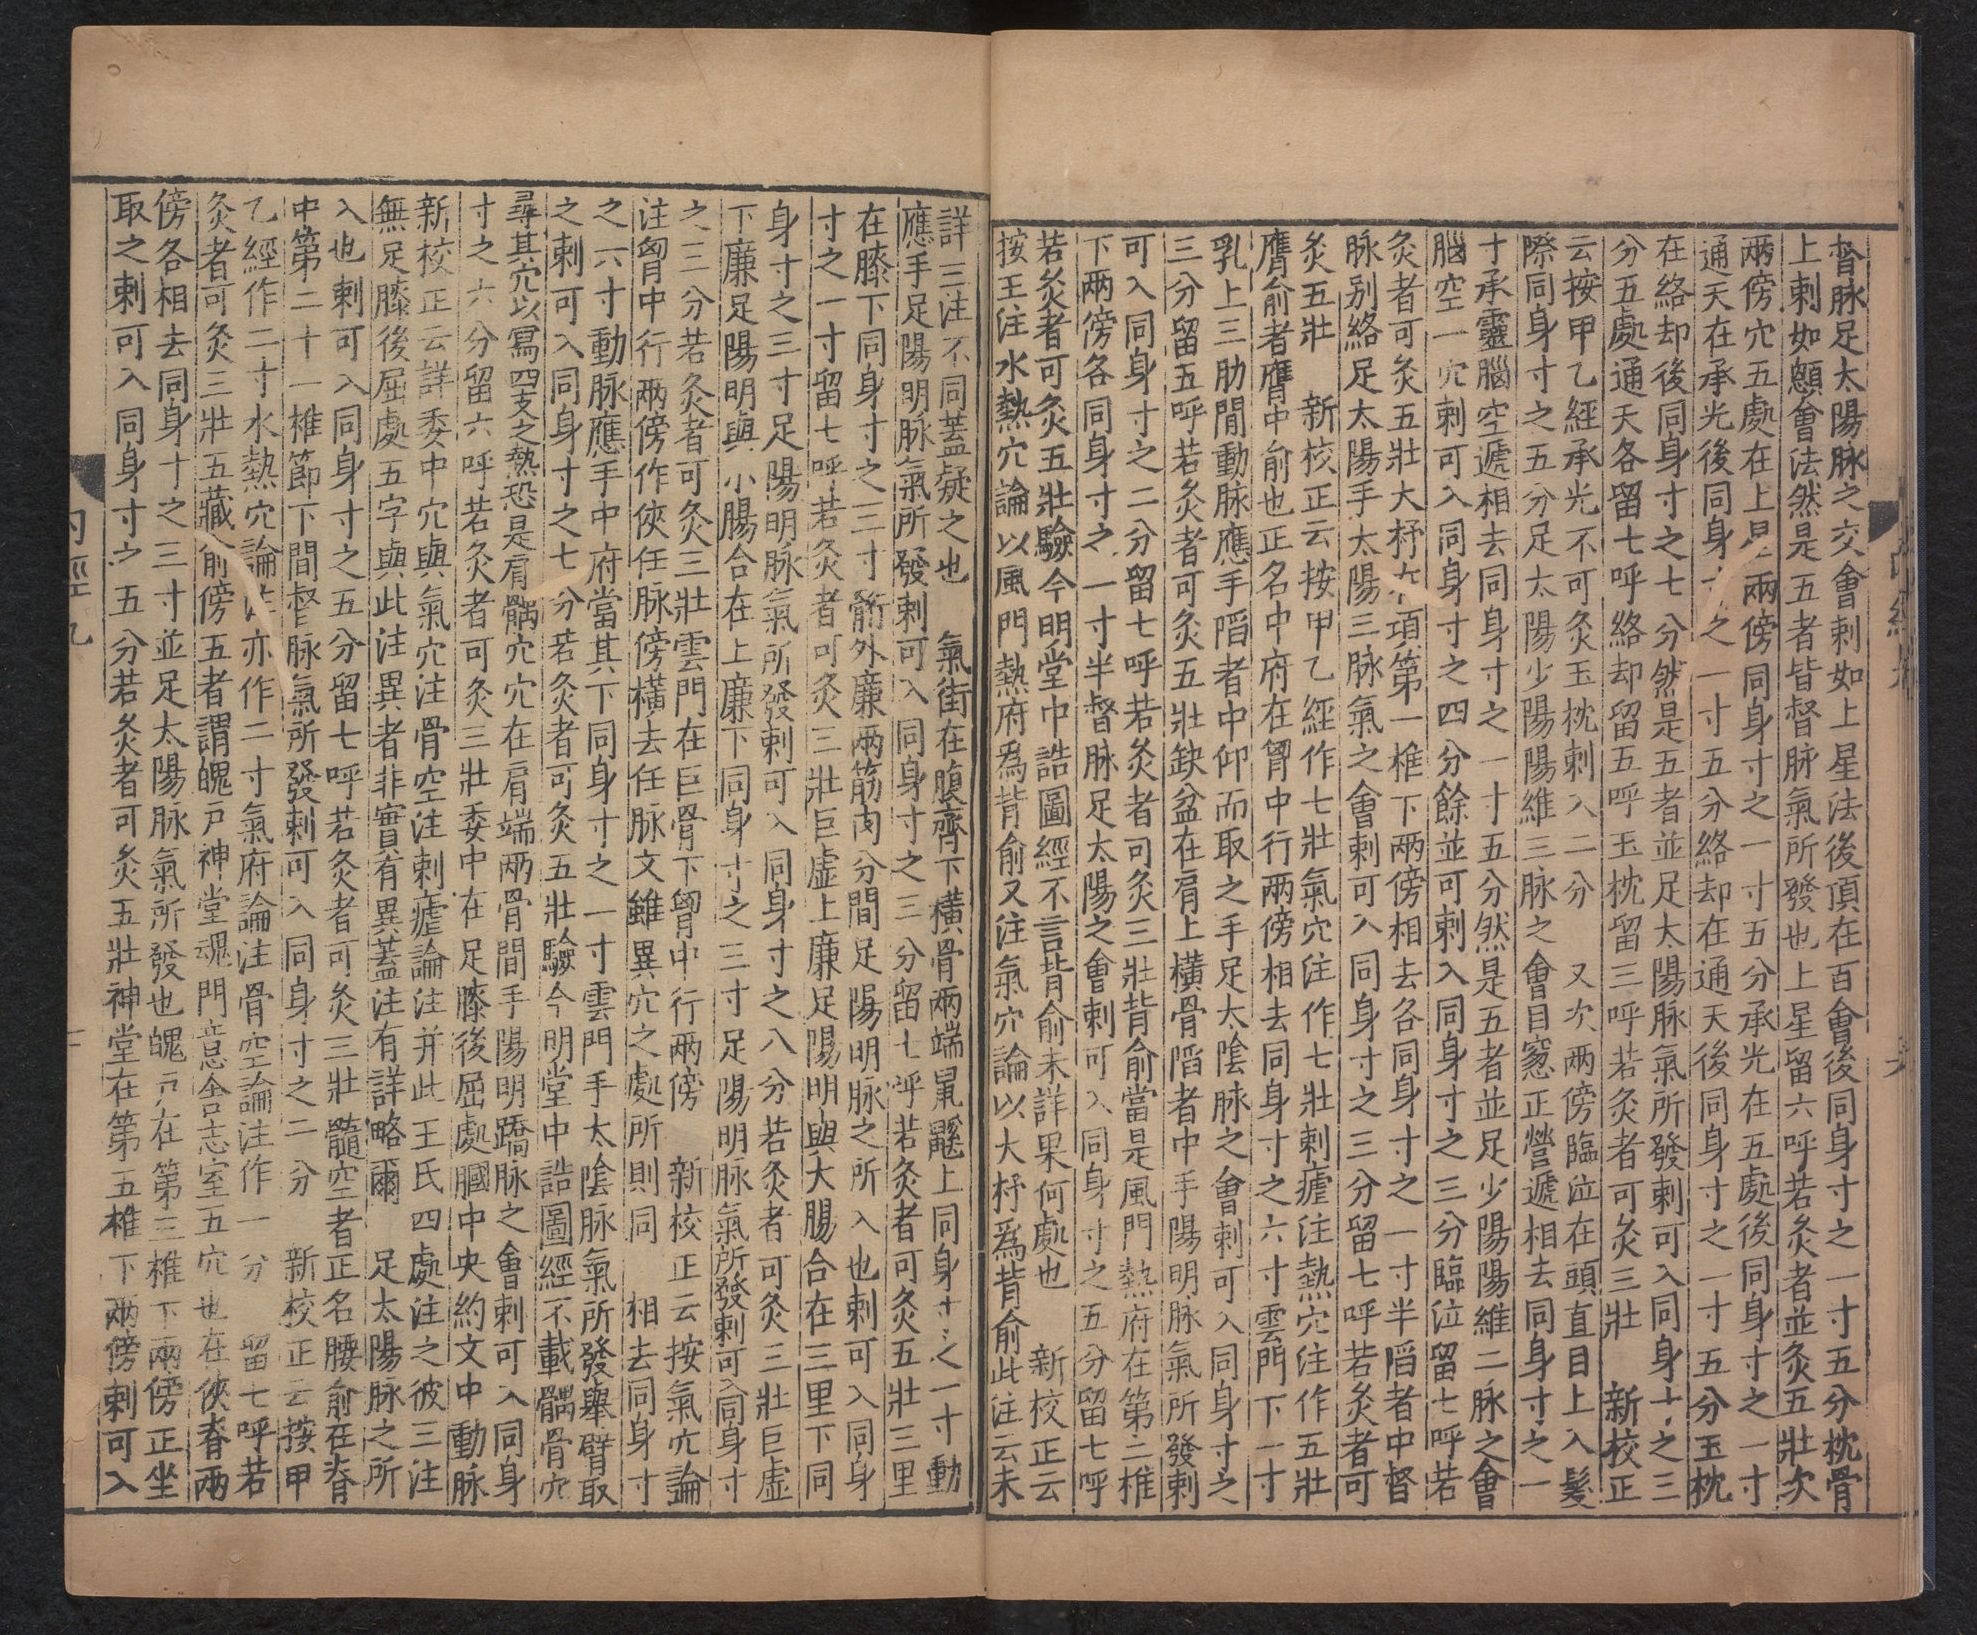 督脉足太陽脉之交會刺如上星法後頂在百會後同身寸之一寸五分枕骨
上刺如顖會法然是五者皆督脉氣所發也上星留六呼若灸者並灸五壯次
兩傍穴五處在上星兩傍同身寸之一寸五分承光在五處後同身寸之一寸
通天在承光後同身寸之一寸五分絡却在通天後同身寸之一寸五分玉枕
在絡却後同身寸之七分然是五者並足太陽脉氣所發刺可入同身寸之三
分五處通天各留七呼絡却留五呼玉枕留三呼若灸者可灸三壯 新校正
云按甲乙經承光不可灸玉枕刺入二分 又次兩傍臨泣在頭直目上入髮
際同身寸之五分足太陽少陽陽維三脉之會目窻正營遞相去同身寸之一
寸承靈腦空遞相去同身寸之一寸五分然是五者並足少陽陽維二脉之會
腦空一穴刺可入同身寸之四分餘並可刺入同身寸之三分臨泣留七呼若
灸者可灸五壯大杼在項第一椎下兩傍相去各同身寸之一寸半陷者中督
脉别絡足太陽手太陽三脉氣之會刺可入同身寸之三分留七呼若灸者可
灸五壯 新校正云按甲乙經作七壯氣穴注作七壯刺瘧注熱穴注作五壯
膺俞者膺中俞也正名中府在胷中行兩傍相去同身寸之六寸雲門下一寸
乳上三肋間動脉應手陷者中仰而取之手足太陰脉之會刺可入同身寸之
三分留五呼若灸者可灸五壯缺盆在肩上横骨陷者中手陽明脉氣所發刺
可入同身寸之二分留七呼若灸者可灸三壯背俞當是風門熱府在第二椎
下兩傍各同身寸之一寸半督脉足太陽之會刺可入同身寸之五分留七呼
若灸者可灸五壯驗今明堂中誥圖經不言背俞未詳果何處也 新校正云
按王注水熱穴論以風門熱府爲背俞又注氣穴論以大杼爲背俞此注云未
詳三注不同蓋疑之也 氣街在腹齊下横骨兩端鼠鼷上同身寸之一寸動
應手足陽明脉氣所發刺可入同身寸之三分留七呼若灸者可灸五壯三里
在膝下同身寸之三寸䯒外廉兩筋肉分間足陽明脉之所入也刺可入同身
寸之一寸留七呼若灸者可灸三壯巨虚上廉足陽明與大腸合在三里下同
身寸之三寸足陽明脉氣所發刺可入同身寸之八分若灸者可灸三壯巨虚
下廉足陽明與小腸合在上廉下同身寸之三寸足陽明脉氣所發刺可入同身寸
之三分若灸者可灸三壯雲門在巨骨下胷中行兩傍 新校正云按氣穴論
注胷中行兩傍作俠任脉傍横去任脉文雖異穴之處所則同 相去同身寸
之六寸動脉應手中府當其下同身寸之一寸雲門手太陰脉氣所發舉臂取
之刺可入同身寸之七分若灸者可灸五壯驗今明堂中誥圖經不載髃骨穴
尋其穴以寫四支之熱恐是肩髃穴穴在肩端兩骨間手陽明蹻脉之會刺可入同身
寸之六分留六呼若灸者可灸三壯委中在足膝後屈處膕中央約文中動脉
新校正云詳委中穴與氣穴注骨空注刺瘧論注并此王氏四處注之彼三注
無足膝後屈處五字與此注異者非實有異蓋注有詳略爾 足太陽脉之所
入也刺可入同身寸之五分留七呼若灸者可灸三壯髓空者正名腰俞在脊
中第二十一椎節下間督脉氣所發刺可入同身寸之二分 新校正云按甲
乙經作二寸水熱穴論注亦作二寸氣府論注骨空論注作一分 留七呼若
灸者可灸三壯五藏俞傍五者謂魄戸神堂魂門意舍志室五穴也在俠脊兩
傍各相去同身寸之三寸並足太陽脉氣所發也魄戸在第三椎下兩傍正坐
取之刺可入同身寸之五分若灸者可灸五壯神堂在第五椎下兩傍刺可入
内經九